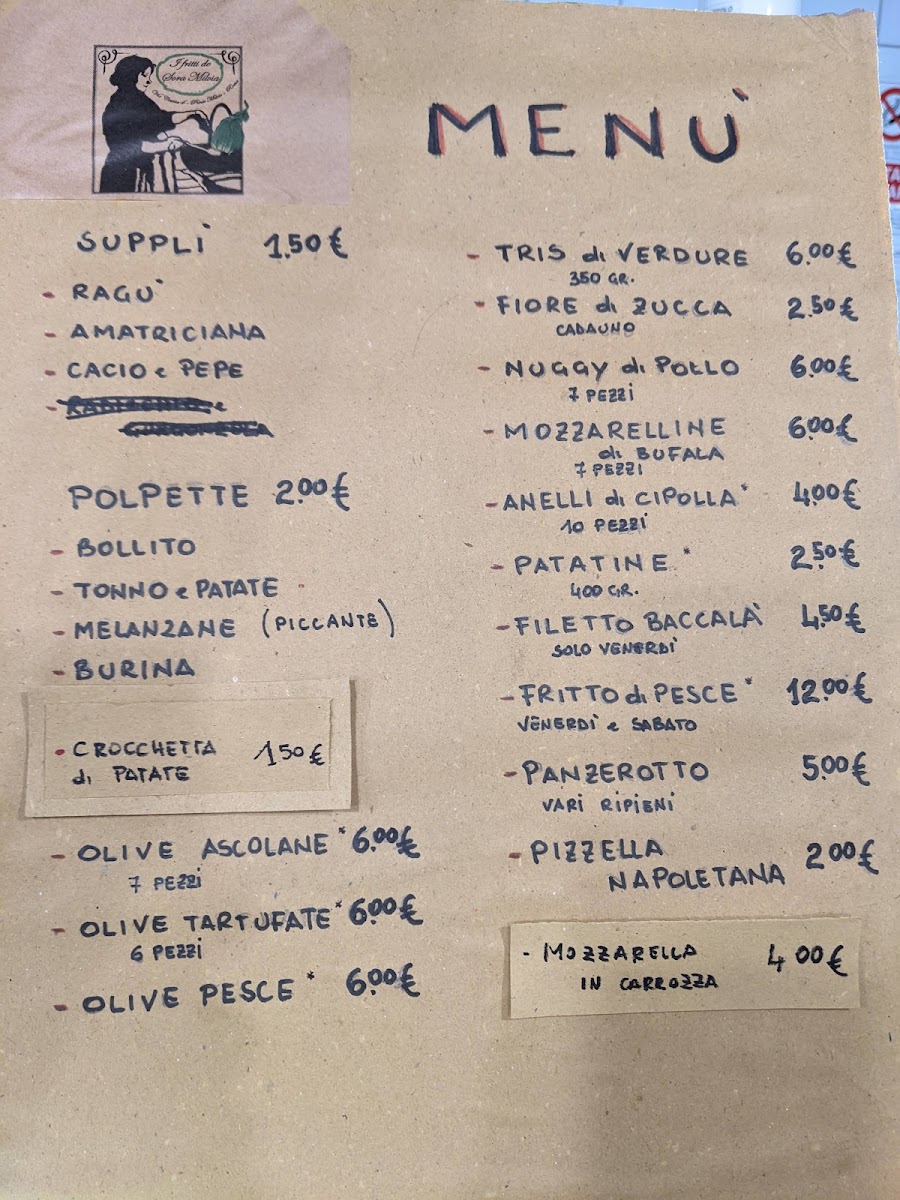 I fritti de
Sora Milvia
MENÙ
SUPPLÌ 1.50 €
- RAGÙ
- AMATRICIANA
- CACIO e PEPE
- RADICCHIO e
GORGONZOLA
POLPETTE 2.00 €
- BOLLITO
- TONNO e PATATE
- MELANZANE (PICCANTE)
- BURINA
- CROCCHETTA 1.50 €
di PATATE
- OLIVE ASCOLANE* 6.00 €
7 PEZZI
- OLIVE TARTUFATE* 6.00 €
6 PEZZI
- OLIVE PESCE* 6.00 €
- TRIS di VERDURE 6.00 €
350 GR.
- FIORE di ZUCCA 2.50 €
CADAUNO
- NUGGY di POLLO 6.00 €
7 PEZZI
- MOZZARELLINE 6.00 €
di BUFALA
7 PEZZI
- ANELLI di CIPOLLA* 4.00 €
10 PEZZI
- PATATINE* 2.50 €
400 GR.
- FILETTO BACCALÀ 4.50 €
SOLO VENERDÌ
- FRITTO di PESCE* 12.00 €
VENERDÌ e SABATO
- PANZEROTTO 5.00 €
VARI RIPIENI
- PIZZELLA 2.00 €
NAPOLETANA
- MOZZARELLA 4.00 €
IN CARROZZA